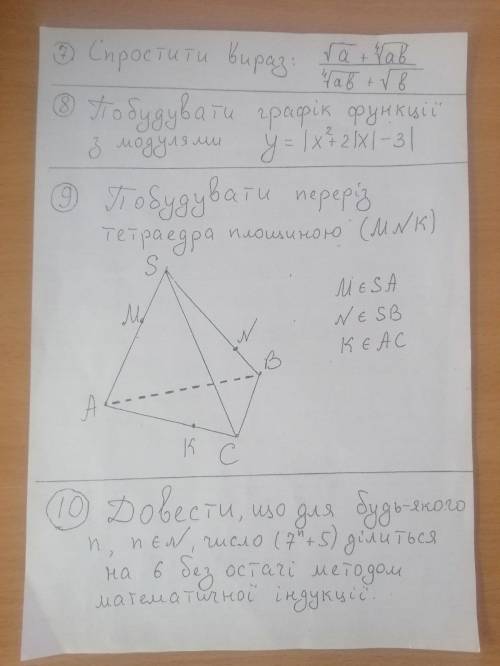 7 Спростити вираз: (√a + ⁴√ab) / (⁴√ab + √b)
8 Побудувати графік функції
з модулями y = |x²+2|x| - 3|
9 Побудувати переріз
тетраедра площиною (MNK)
S
M
N
B
A
K
C
M ∈ SA
N ∈ SB
K ∈ AC
10 Довести, що для будь-якого
n, n ∈ N, число (7ⁿ+5) ділиться
на 6 без остачі методом
математичної індукції.